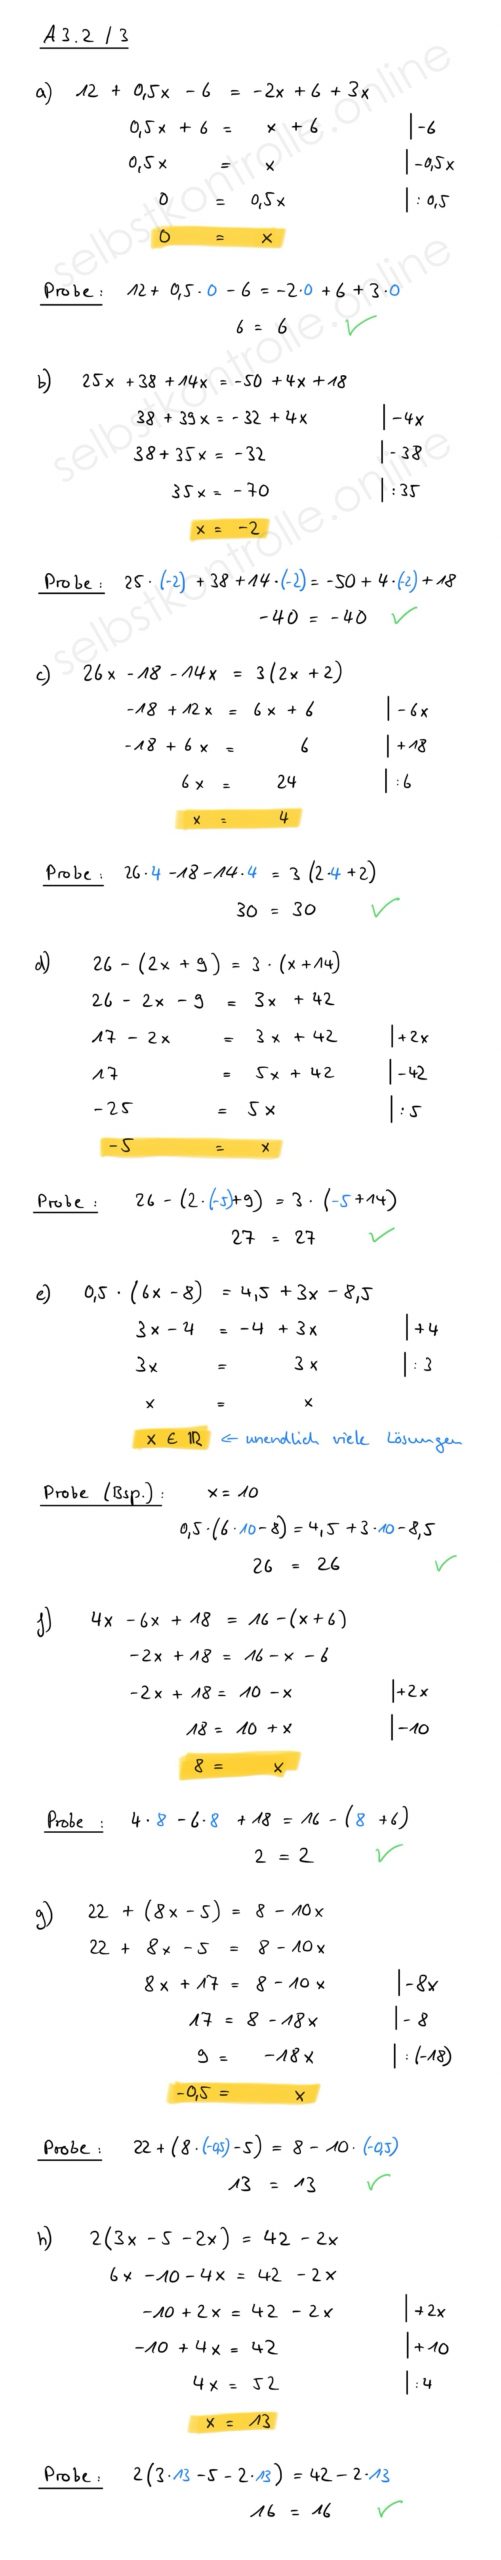 A 3.2 / 3
a) 12 + 0,5x - 6 = -2x + 6 + 3x
0,5x + 6 = x + 6 |-6
0,5x = x |-0,5x
0 = 0,5x |: 0,5
0 = x
Probe: 12 + 0,5·0 - 6 = -2·0 + 6 + 3·0
6 = 6 ✓
b) 25x + 38 + 14x = -50 + 4x + 18
38 + 39x = -32 + 4x |-4x
38 + 35x = -32 |-38
35x = -70 |: 35
x = -2
Probe: 25·(-2) + 38 + 14·(-2) = -50 + 4·(-2) + 18
-40 = -40 ✓
c) 26x - 18 - 14x = 3(2x + 2)
-18 + 12x = 6x + 6 |-6x
-18 + 6x = 6 |+18
6x = 24 |:6
x = 4
Probe: 26·4 - 18 - 14·4 = 3(2·4 + 2)
30 = 30 ✓
d) 26 - (2x + 9) = 3·(x + 14)
26 - 2x - 9 = 3x + 42
17 - 2x = 3x + 42 |+2x
17 = 5x + 42 |-42
-25 = 5x |: 5
-5 = x
Probe: 26 - (2·(-5)+9) = 3·(-5+14)
27 = 27 ✓
e) 0,5·(6x - 8) = 4,5 + 3x - 8,5
3x - 4 = -4 + 3x |+4
3x = 3x |: 3
x = x
x ∈ ℝ ← unendlich viele Lösungen
Probe (Bsp.): x = 10
0,5·(6·10-8) = 4,5 + 3·10 - 8,5
26 = 26 ✓
f) 4x - 6x + 18 = 16 - (x + 6)
-2x + 18 = 16 - x - 6
-2x + 18 = 10 - x |+2x
18 = 10 + x |-10
8 = x
Probe: 4·8 - 6·8 + 18 = 16 - (8 + 6)
2 = 2 ✓
g) 22 + (8x - 5) = 8 - 10x
22 + 8x - 5 = 8 - 10x
8x + 17 = 8 - 10x |-8x
17 = 8 - 18x |-8
9 = -18x |: (-18)
-0,5 = x
Probe: 22 + (8·(-0,5) - 5) = 8 - 10·(-0,5)
13 = 13 ✓
h) 2(3x - 5 - 2x) = 42 - 2x
6x - 10 - 4x = 42 - 2x
-10 + 2x = 42 - 2x |+2x
-10 + 4x = 42 |+10
4x = 52 |:4
x = 13
Probe: 2(3·13 - 5 - 2·13) = 42 - 2·13
16 = 16 ✓
selbstkontrolle.online
selbstkontrolle.online
selbstkontrolle.online